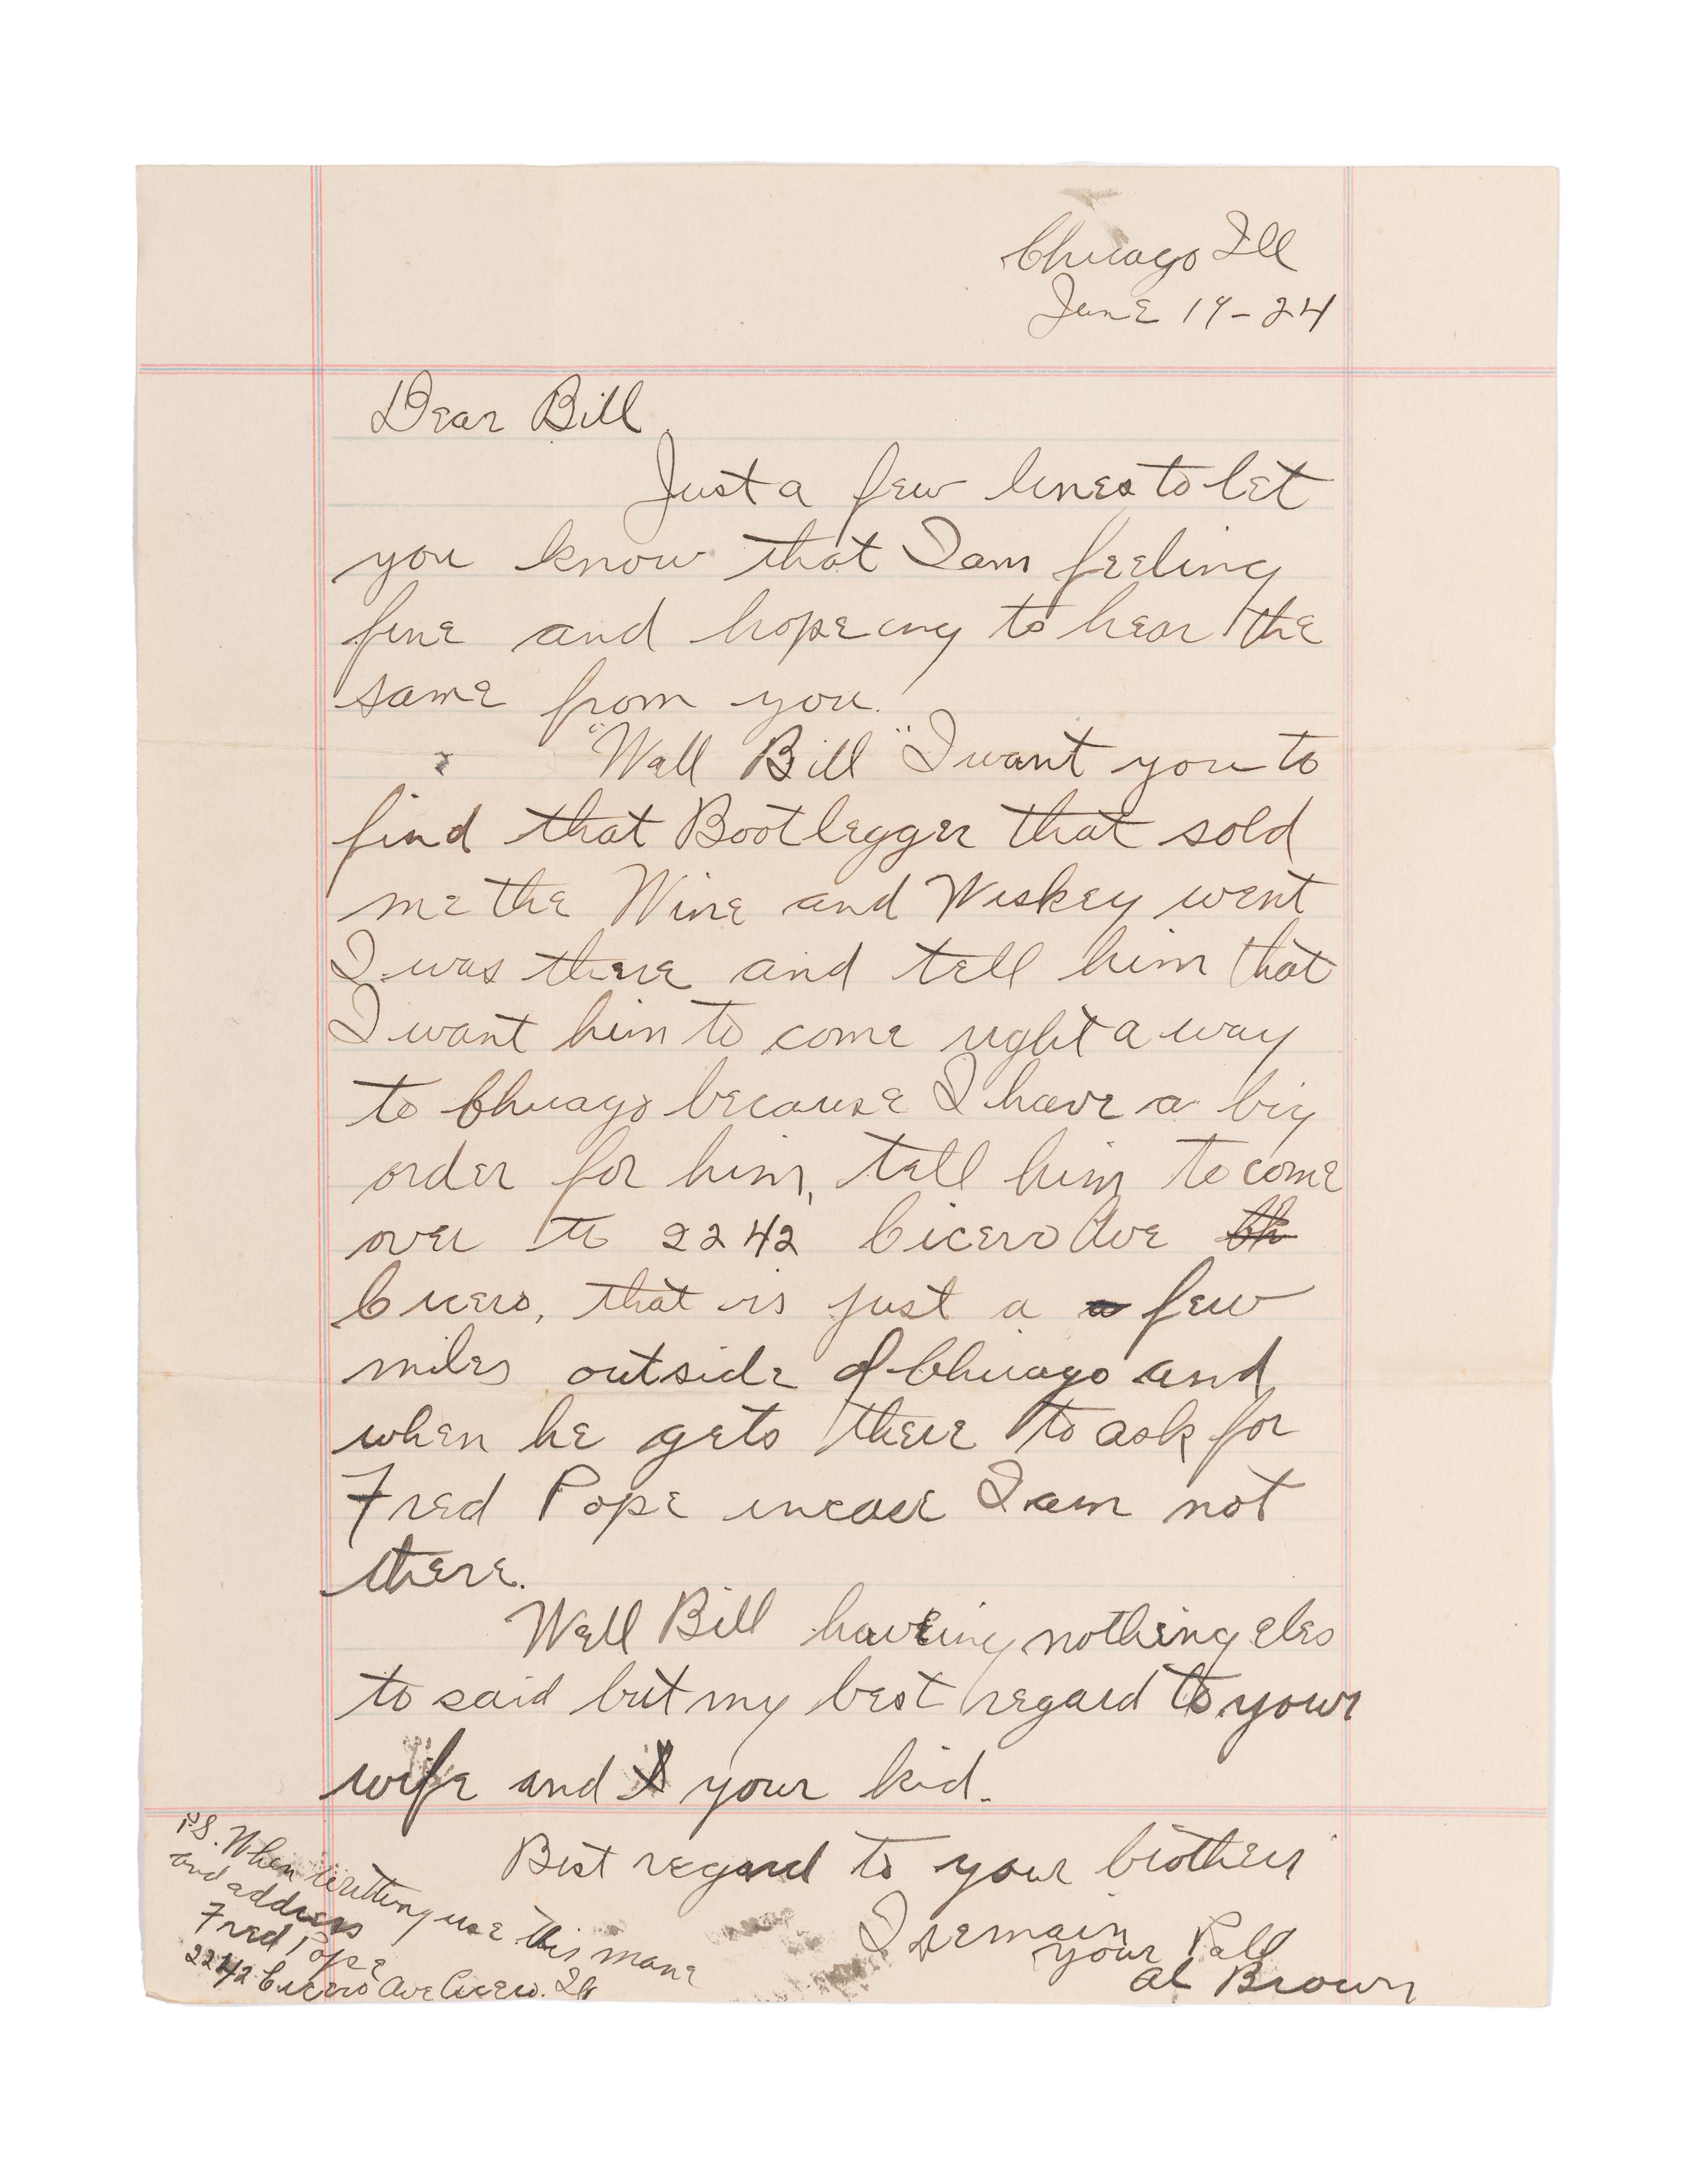 Chicago Ill
June 19-24
Dear Bill
Just a few lines to let
you know that I am feeling
fine and hopeing to hear the
same from you.
"Well Bill" I want you to
find that Bootlegger that sold
me the Wine and Wiskey went
I was there and tell him that
I want him to come right a way
to Chicago because I have a big
order for him, tell him to come
over to 2242 Cicero Ave Ch
Cicero, that is just a a few
miles outside of Chicago and
when he gets there to ask for
Fred Pope incase I am not
there.
Well Bill haveing nothing eles
to said but my best regard to your
wife and your kid.
Best regard to your brothers
I remain
your Pall
Al Brown
P.S. When writting use this mane
and address
Fred Pope
2242 Cicero Ave Cicero. Ill